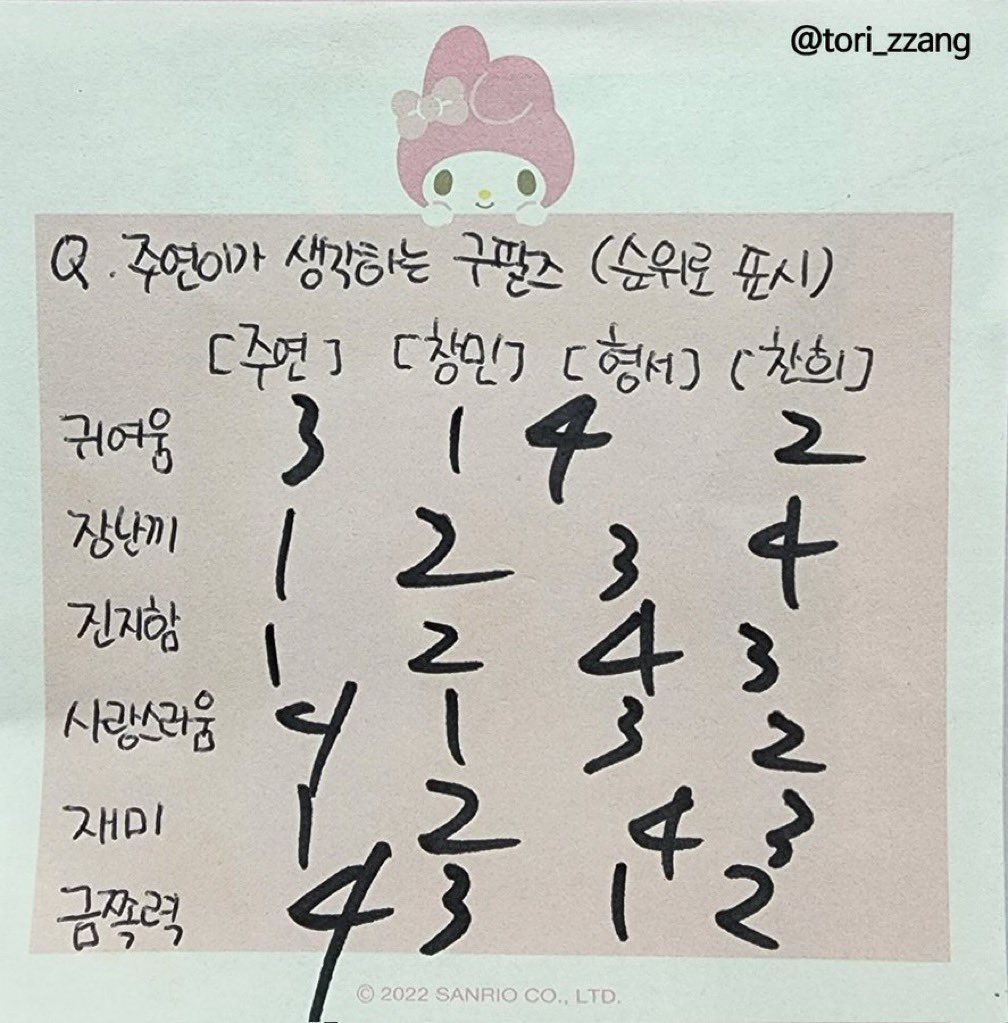 @tori_zzang
Q. 주연이가 생각하는 구팔즈 (순위로 표시)
[주연] [창민] [형서] [찬희]
귀여움 3 1 4 2
장난끼 1 2 3 4
진지함 1 2 4 3
사랑스러움 4 1 3 2
재미 1 2 4 3
금쪽력 4 3 1 2
© 2022 SANRIO CO., LTD.